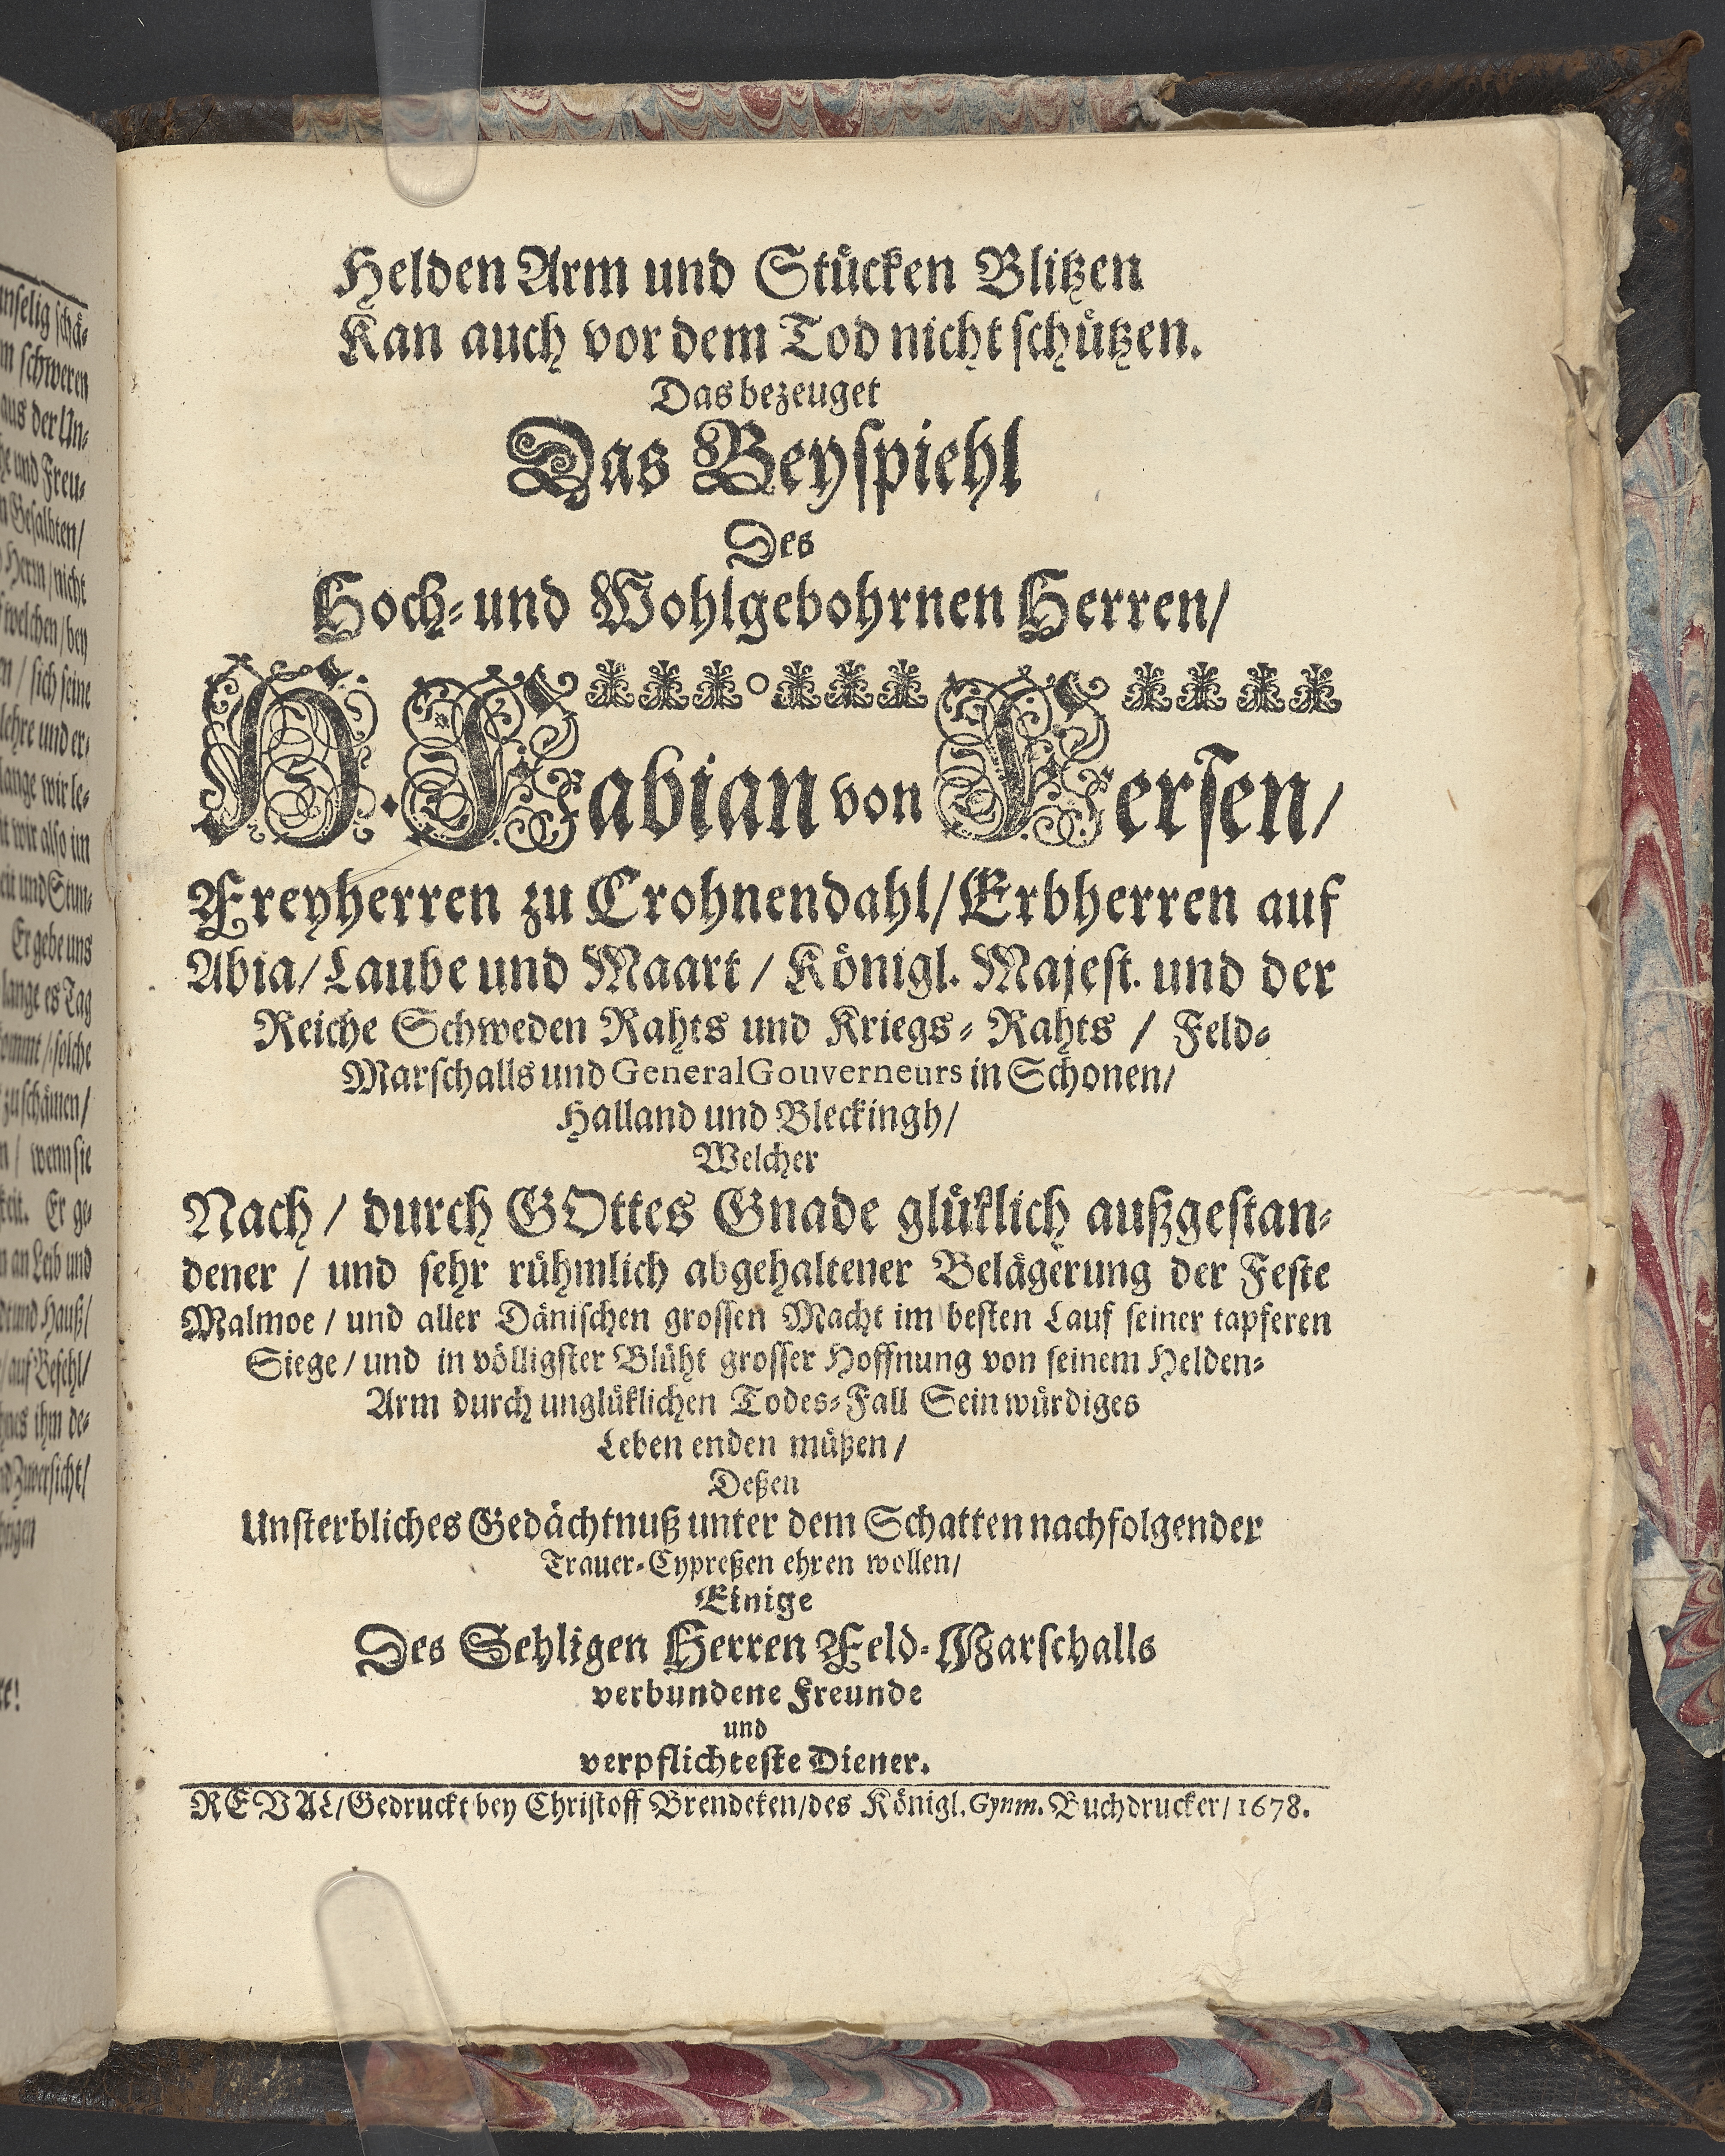 Helden Arm und Stücken Blitzen
Kan auch vor dem Tod nicht schützen.
Das bezeuget
Das Beyspiehl
Des
Hoch- und Wohlgebohrnen Herren/
H. Fabian von Fersen/
Freyherren zu Crohnendahl/ Erbherren auf
Abia/ Laube und Maart/ Königl. Majest. und der
Reiche Schweden Rahts und Kriegs-Rahts/ Feld-
Marschalls und General Gouverneurs in Schonen/
Halland und Bleckingh/
Welcher
Nach/ durch GOttes Gnade glüklich außgestan-
dener/ und sehr rühmlich abgehaltener Belägerung der Feste
Malmoe/ und aller Dänischen grossen Macht im besten Lauf seiner tapferen
Siege/ und in völligster Blüht grosser Hoffnung von seinem Helden-
Arm durch unglüklichen Todes-Fall Sein würdiges
Leben enden müßen/
Deßen
Unsterbliches Gedächtnuß unter dem Schatten nachfolgender
Trauer-Cypreßen ehren wollen/
Einige
Des Sehligen Herren Feld-Marschalls
verbundene Freunde
und
verpflichteste Diener.
REVAL/ Gedruckt bey Christoff Brendeken/ des Königl. Gynm. Buchdrucker/ 1678.